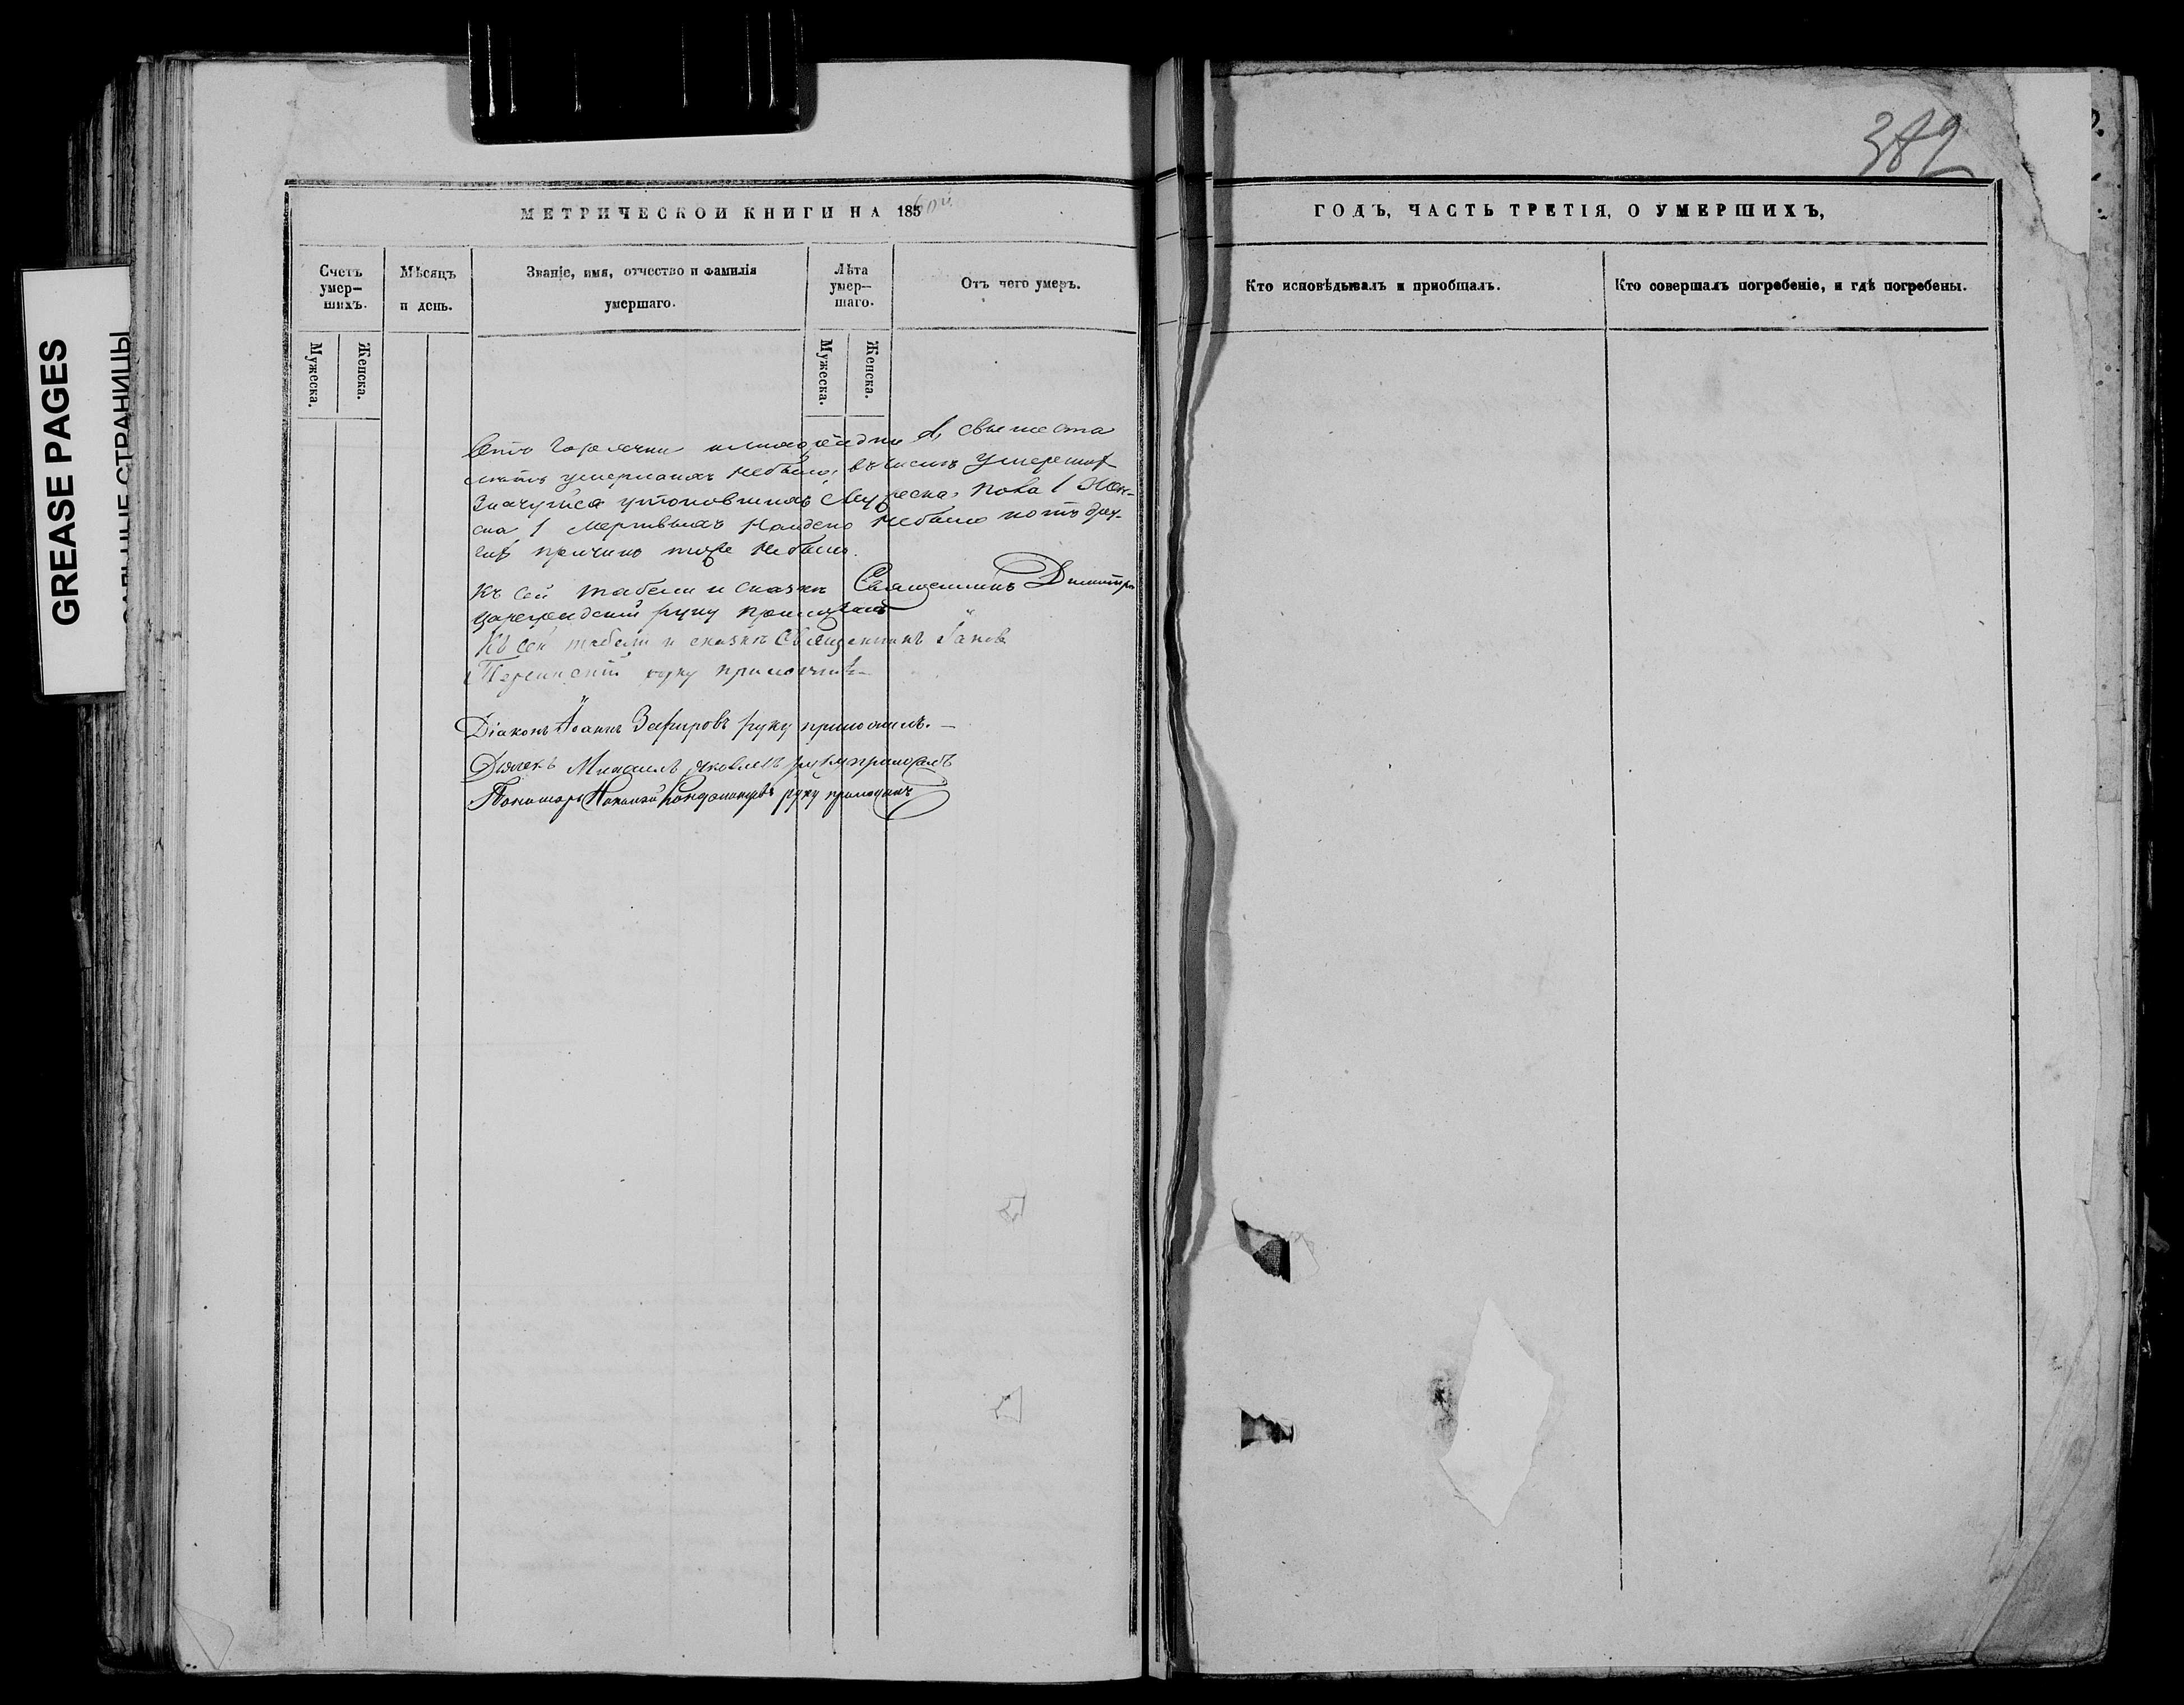 GREASE PAGES
САЛЬНЫЕ СТРАНИЦЫ
382
МЕТРИЧЕСКОЙ КНИГИ НА 185
ГОДЪ, ЧАСТЬ ТРЕТІЯ, О УМЕРШИХЪ,
Счетъ умер-шихъ.
Мѣсяцъ и день.
Званіе, имя, отчество и фамилія умершаго.
Лѣта умер-шаго.
Отъ чего умеръ.
Кто исповѣдывалъ и приобщалъ.
Кто совершалъ погребеніе, и гдѣ погребены.
Мужеска.
Женска.
Мужеска.
Женска.
Отъ горячки свыше ста
лѣтъ умершихъ небыло, въ числѣ умерших
значутся утоповшихъ Мужеска пола 1 Жен-
ска 1 мертвыхъ найдено небыло и отъ дру-
гих причинъ тоже небыло.
Къ сей табели и сказкѣ Священникъ Димитрій
руку приложилъ
Къ сей табели и сказкѣ Священникъ Іаковъ
руку приложилъ
Діаконъ Іоаннъ Зафировъ руку приложилъ. —
Дьячекъ Михаилъ Яковлевъ руку приложилъ
Пономарь Николай руку приложилъ